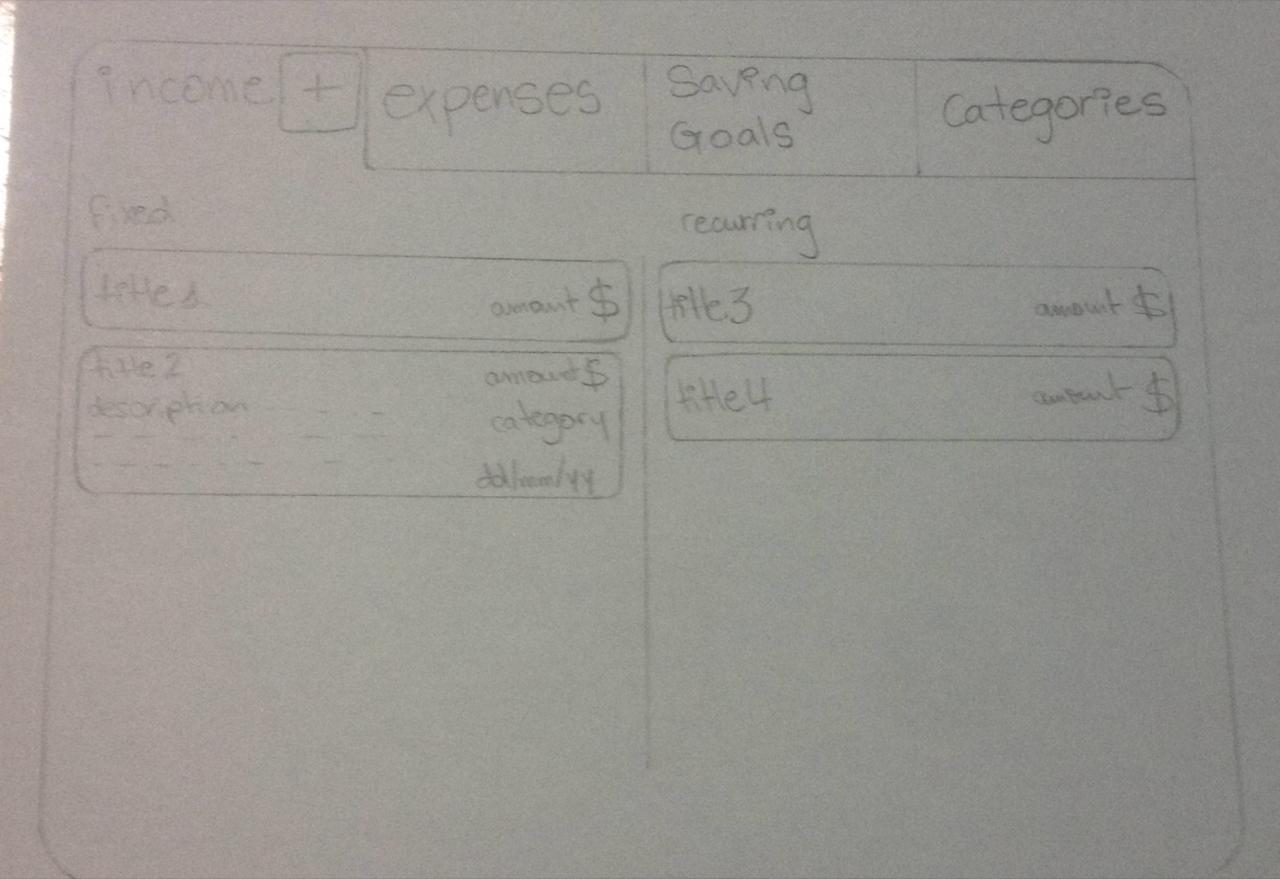 income + expenses Saving Goals Categories
fixed
recurring
title1 amount $
title2 amount $
description category
dd/mm/yy
title3 amount $
title4 amount $